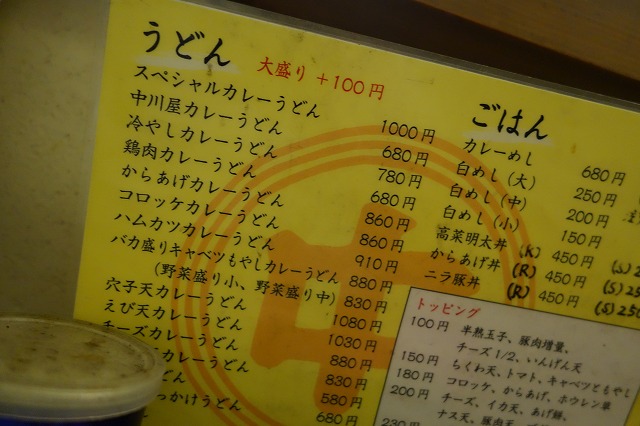 うどん 大盛り +100円
スペシャルカレーうどん 1000円
中川屋カレーうどん 680円
冷やしカレーうどん 780円
鶏肉カレーうどん 680円
からあげカレーうどん 860円
コロッケカレーうどん 860円
ハムカツカレーうどん 910円
バカ盛りキャベツもやしカレーうどん 880円
(野菜盛り小、野菜盛り中) 830円
穴子天カレーうどん 1080円
えび天カレーうどん 1030円
チーズカレーうどん 880円
カレーうどん 830円
どん 580円
っかけうどん 680円
ごはん
カレーめし 680円
白めし(大) 250円
白めし(中) 200円
白めし(小) 150円
高菜明太丼 (R) 450円
からあげ丼 (R) 450円 (S)
ニラ豚丼 (R) 450円 (S)250
トッピング
100円 半熟玉子、豚肉増量、
チーズ1/2、いんげん天
150円 ちくわ天、トマト、キャベツともやし
180円 コロッケ、からあげ、ホウレン草
200円 チーズ、イカ天、あげ餅、
ナス天、豚肉天
230円